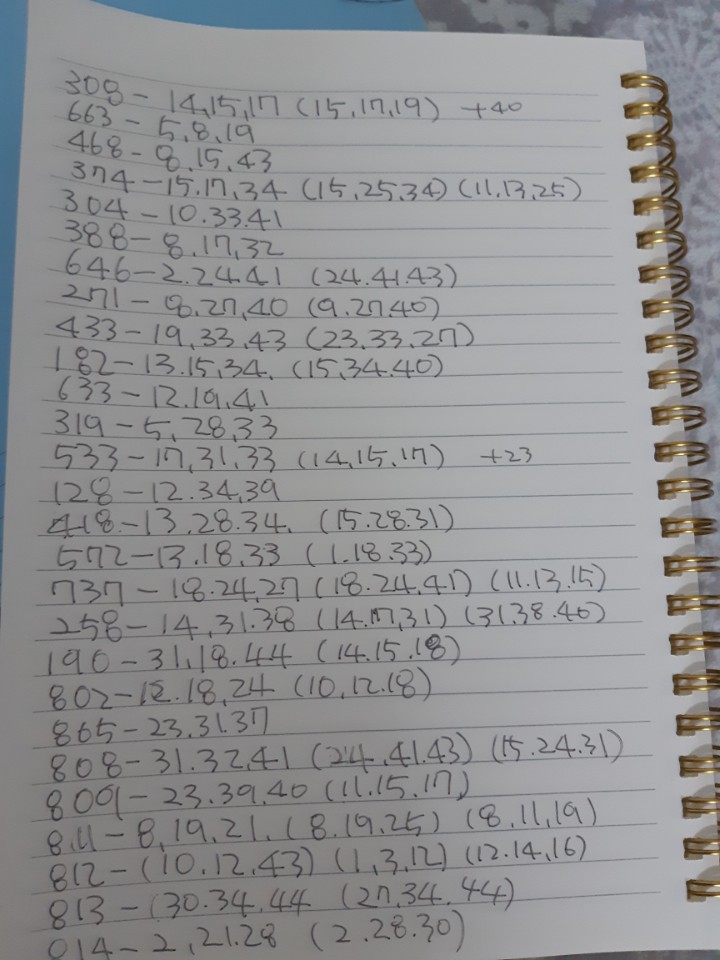 308 - 14,15,17 (15,17,19) +40
663 - 5,8,19
468 - 8.15,43
374 - 15.17,34 (15,25,34) (11,13,25)
304 - 10.33.41
388 - 8,17,32
646 - 2.24.41 (24.41.43)
271 - 8.27,40 (9.27.40)
433 - 19,33,43 (23,33,27)
182 - 13.15,34. (15,34.40)
633 - 12.19,41
319 - 5,28,33
533 - 17,31,33 (14,15.17) +23
128 - 12.34,39
418 - 13,28.34. (15.28.31)
572 - 13.18,33 (1.18.33)
737 - 18.24,27 (18.24,47) (11.13.15)
258 - 14,31.38 (14.17,31) (31,38.40)
190 - 31,18.44 (14.15.18)
802 - 12.18,24 (10,12.18)
865 - 23,31.37
808 - 31.32,41 (24,41,43) (15.24.31)
809 - 23.39,40 (11.15,17)
811 - 8,19,21. (8.19.25) (8,11,19)
812 - (10.12,43) (1,3,12) (12.14,16)
813 - (30.34.44 (27,34.44)
814 - 2,21.28 (2.28.30)